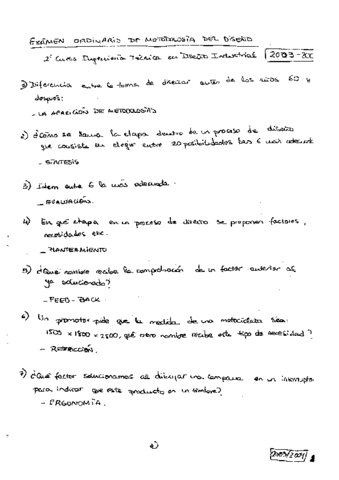 EXÁMEN ORDINARIO DE METODOLOGÍA DEL DISEÑO
2º Curso Ingeniería Técnica en Diseño Industrial 2003-
1) Diferencia entre la forma de diseñar antes de los años 60 y
después:
- LA APARICIÓN DE METODOLOGÍAS
2) ¿Cómo se llama la etapa dentro de un proceso de diseño
que consiste en elegir entre 20 posibilidades las 6 más
- SÍNTESIS
3) Idem entre 6 la más adecuada.
- EVALUACIÓN.
4) En qué etapa en un proceso de diseño se proponen factores,
necesidades etc.
- PLANTEAMIENTO
5) ¿Qué nombre recibe la comprobación de un factor anterior al
ya solucionado?
- FEED-BACK.
6) Un promotor pide que la medida de una motocicleta sea
1505 x 1800 x 2800, qué otro nombre recibe este tipo de necesidad?
- RESTRICCIÓN.
7) ¿Qué factor solucionamos al dibujar una campana en un
para indicar que este producto es un timbre?
- ERGONOMÍA.
2003/2004 1